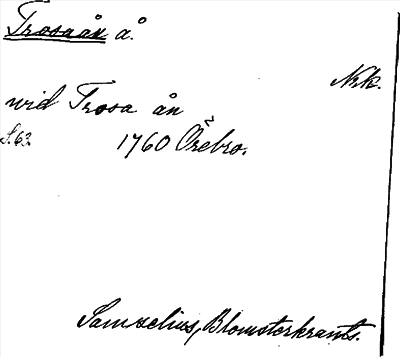 Trosaån å.
Nrk.
wid Trosa ån
S. 63. 1760 Örebro.
Samzelius, Blomsterkrants.